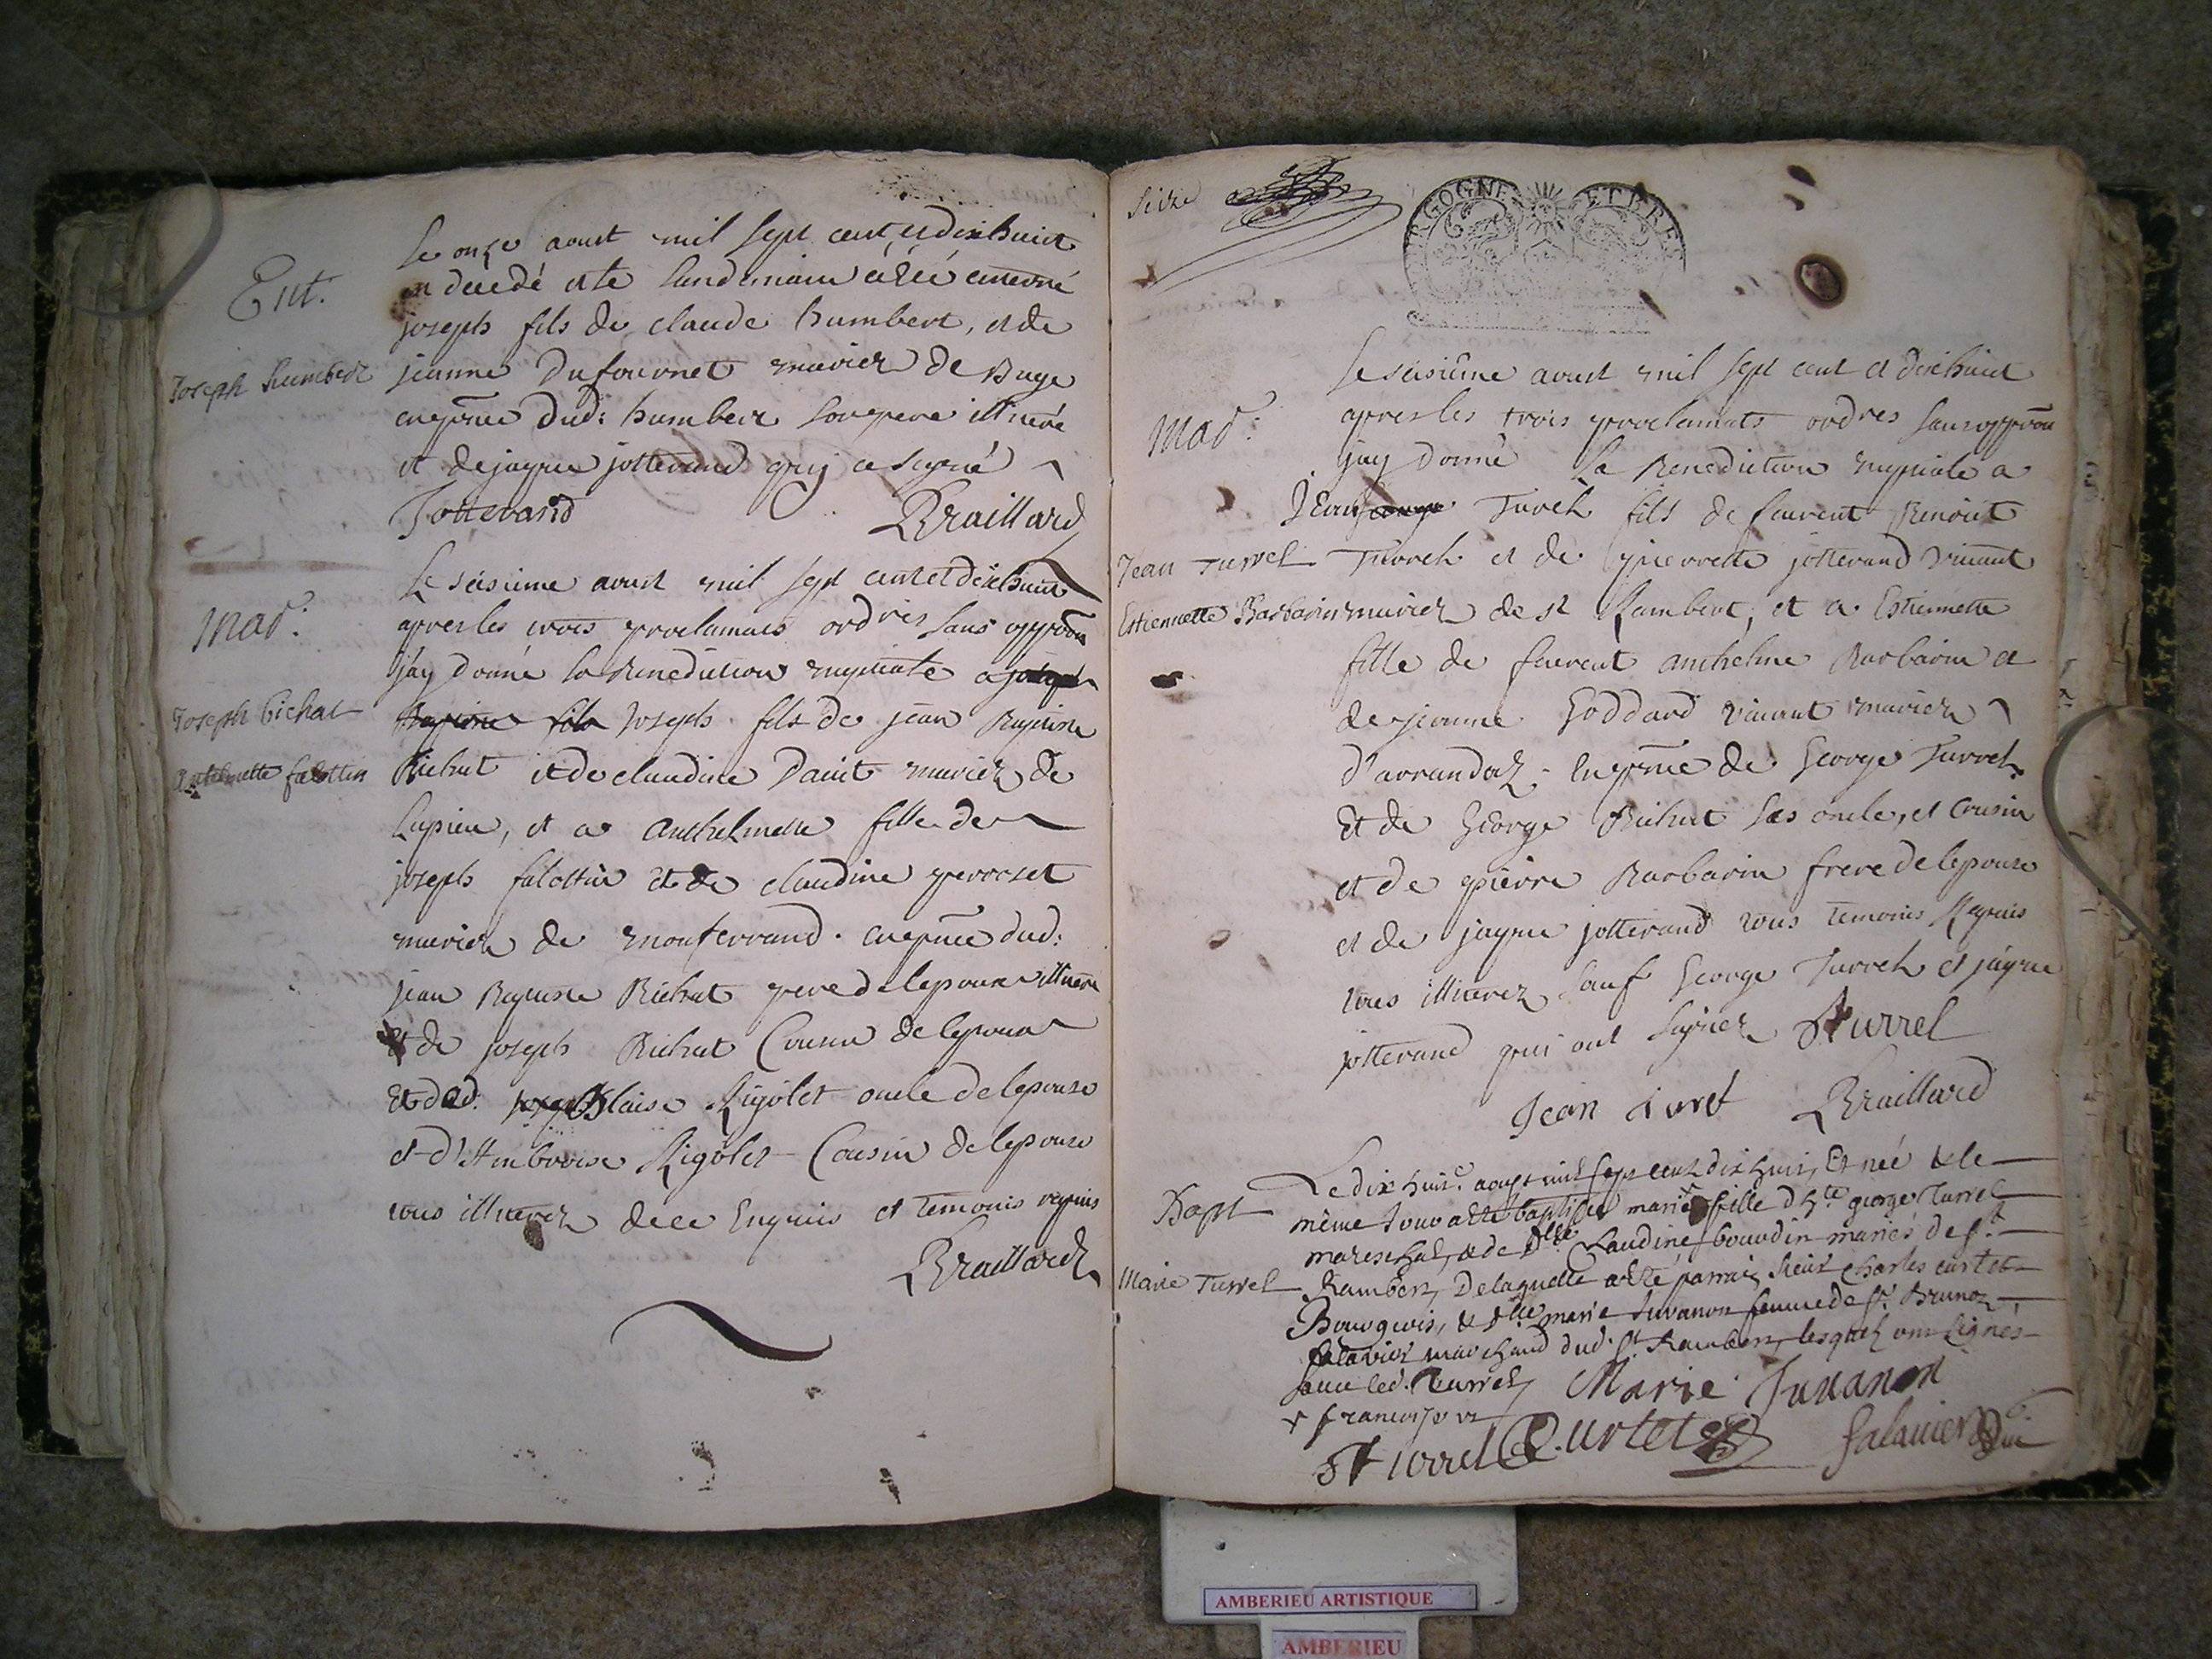 Ent.
Joseph humbert
Le onze aoust mil sept cent et dixhuict
est decedé et le lendemain a été enterré
joseph fils de claude humbert, et de
jeanne Dufournet mariez de Buge
en pnce dud: humbert son pere illitteré
et de jaque jotterand quj a signé
Jotterand Braillard
Mar.
Joseph bichat
antelmette falottin
Le seisieme aoust mil sept cent et dixhuict
apres les trois proclamats ordres sans oppoon
jay donné la Benediction nuptiale a joseph
Baptiste fils Joseph fils de jean Baptiste
Bichat et de claudine Daint mariez de
Lupieu, et a Anthelmette fille de
joseph falottin et de claudine perroset
mariez de monferrand. en pnce dud:
jean Baptiste Bichat pere de lepoux illitteré
et de joseph Bichat Cousin de lepoux
et de Blaise Rigolet oncle de lepouse
et d'Ambroise Rigolet Cousin de lepouse
tous illiterez de ce Enquis et temoins requis
Braillard
Seize
RGOGNE ET BRES
Mar.
Jean Turrel
Estiennette Barbarin
Le seisieme aoust mil sept cent et dixhuict
apres les trois proclamats ordres sans oppoon
jay donné la Benediction nuptiale a
Jean Turrel fils de feu Benoict
Turrel et de pierrette jotterand vivant
mariez de st Rambert, et a Estiennette
fille de feu anthelme Barbarin et
de jeanne Goddard vivant mariez
d'arrandaz. En pnce de George Turrel
Et de George Bichat ses oncle, et Cousin
et de pierre Barbarin frere de lepouse
et de jaque jotterand tous temoins Requis
tous illiterez sauf George Turrel et jaque
jotterand qui ont signez Turrel
Jean turel Braillard
Bapt
Marie Turrel
Le dix huit.e aoust mil sept cent dix huit, Est née & le
même jour a été baptisée marie fille d'h.te george Turrel
mareschal, & de d.lle Claudine bourdin mariés de S.t
Rambert, De laquelle a été parrain sieur Charles curtet
Bourgeois, & d.lle marie Juvanon femme de S.r Brunoz
falavier marchand dud. S.t Rambert, lesquels ont signés
avec led. Turrel, Marie Juuanon
x francoise
Turrel C. Curtet falauier